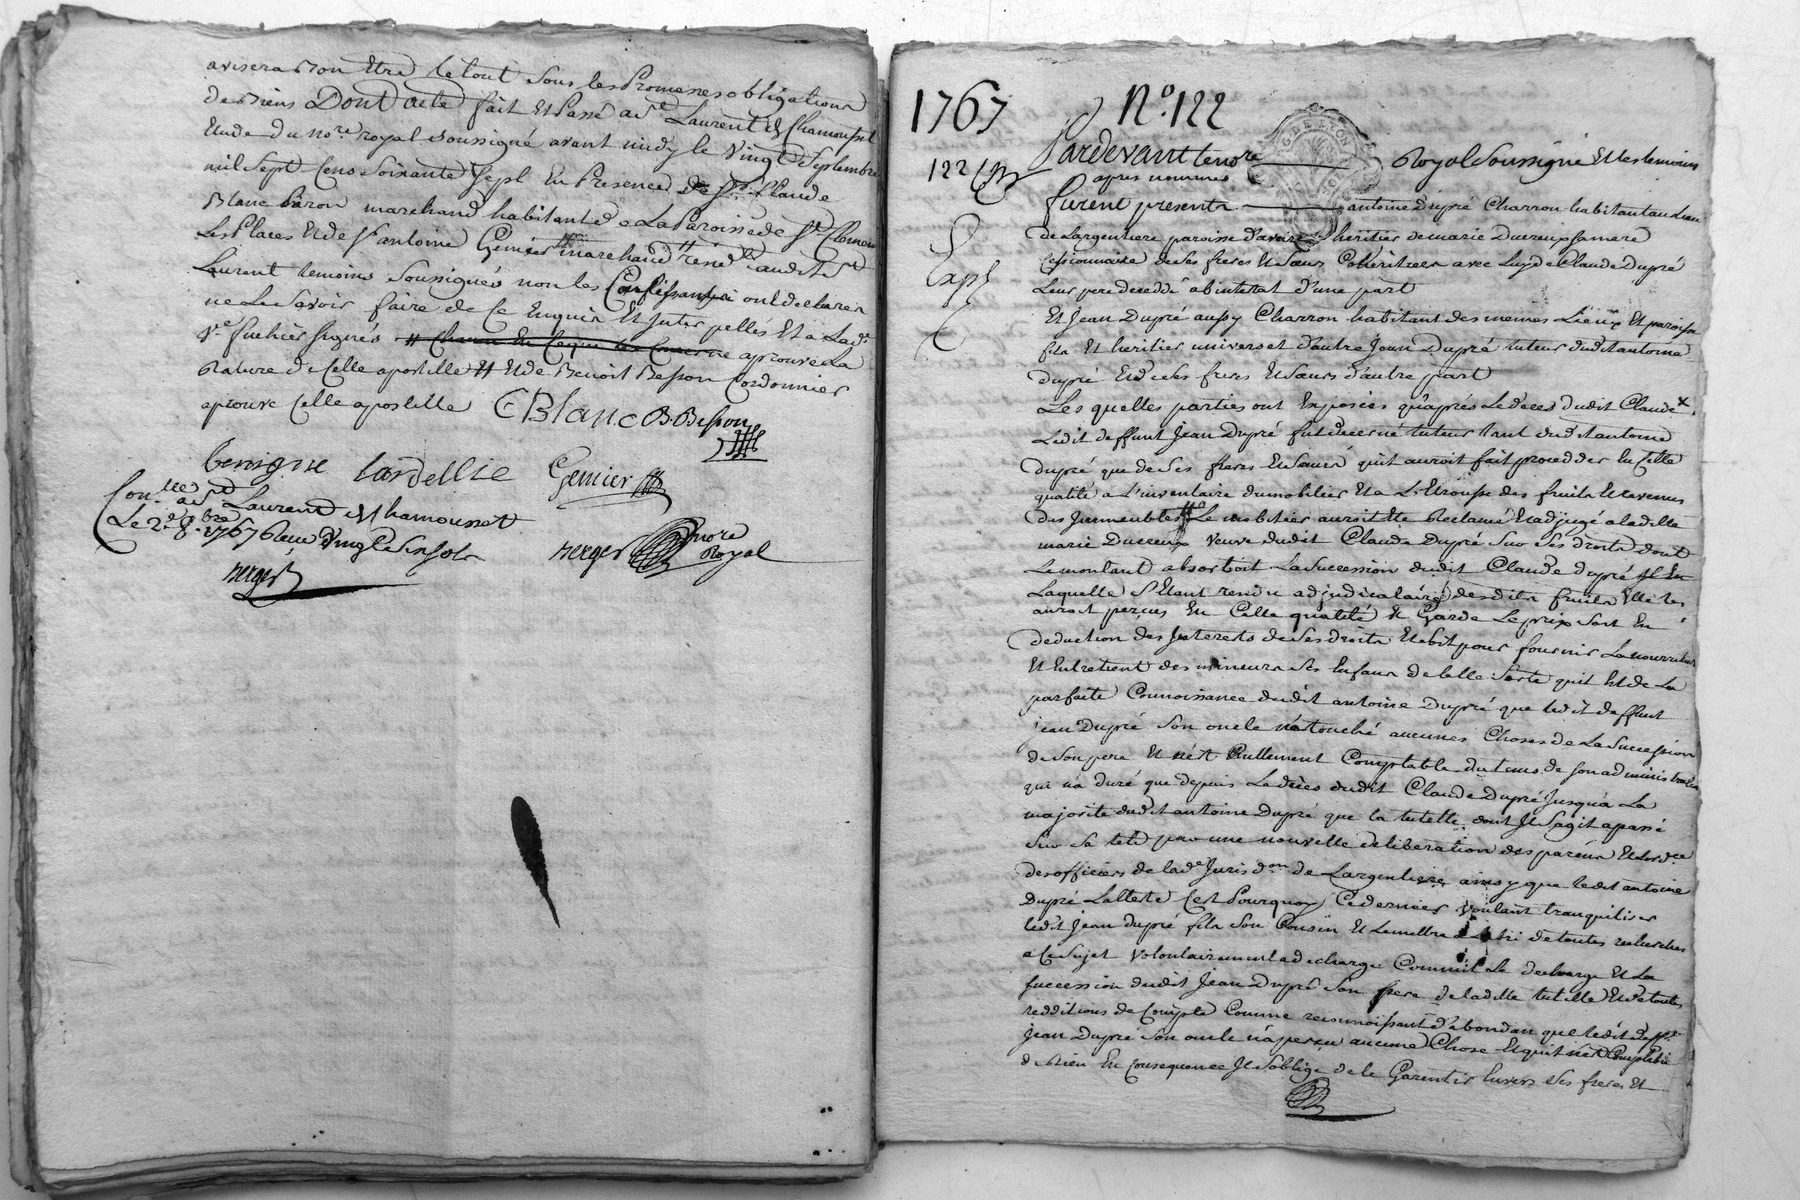 avisera bon Etre le tout sous les Promesses obligations
de biens Dont acte fait Et Passé a St Laurent de Chamousset
Etude du nore royal soussigné avant midy le vingt Septembre
mil Sept Cens Soixante Sept En Presence de Sr Claude
Blanc Baron marchand habitant de La Paroisse de St Clement
Les Places Et de Sr antoine Genier marchand residt audit St
Laurent temoins Soussignés non les Confessants qui ont declarés
ne Le Savoir faire de Ce Enquis Et Inter pellés Et a La de
ve signés # aprouvé La
Rature de Celle apostille # Et de Benoit Besson Cordonnier
aprouve Celle apostille
CBlanc BBesson
benigne Lardellie Genier
Conlle a St Laurent de Chamousset
Le 2e 8bre 1767 Reçu Vingt six sols
Berger
Berger nore Royal
1767 No. 122
122
Pardevant le nore Royal Soussigné Et les temoins
apres nommés
G. DE LYON
furent presents antoine Dupré Charron habitant au Lieu
de Largentiere paroisse d'aveize heritier de marie Ducreux Sa mere
Cessionnaire de Ses freres Et Sœurs Coheritiers avec Luy de Claude Dupré
Leur pere decedé abintestat d'une part
Et Jean Dupré aussy Charron habitant des memes Lieux Et paroisse
fils Et heritier universel d'autre Jean Dupré tuteur dudit antoine
Dupré Et de Ses freres Et Sœurs d'autre part
Les quelles parties ont Exposées qu'aprés Le deces dudit Claude
Ledit deffunt Jean Dupré fut decerné tuteur tant dudit antoine
Dupré que de Ses freres Et Sœurs qu'il auroit fait proceder En Cette
qualité a L'inventaire du mobilier Et a L'Etrousse des fruits Et revenus
des Jmmeubles # Le mobilier auroit Eté Reclamé Et adjugé a ladite
marie Ducreux veuve dudit Claude Dupré Sur Ses droits dont
Le montant absorboit La Succession dudit Claude dupré # En
Laquelle S'Etant rendue adjudicataire desdits fruits Elle les
auroit perçus En Cette qualité Et Gardé Le prix Soit En
deduction des Jnterests de Ses droits Et Soit pour fournir La nourriture
Et Entretient des mineurs Ses Enfans de telle Sorte qu'il Est de La
parfaite Connoissance dudit antoine Dupré que ledit deffunt
jean Dupré Son oncle n'a touché aucunes Choses de La Succession
de Son pere Et n'Est Nullement Comptable du tems de son administration
qui n'a duré que depuis Le deces dudit Claude Dupré Jusqu'a La
majorité dudit antoine Dupré que la tutelle dont Jl S'agit a passé
Sur Sa tete par une nouvelle deliberation des parens Et ordce
des officiers de lade Jurisdon de Largentiere ainsy que ledit antoine
Dupré L'atteste C'est Pourquoy Ce dernier voulant tranquiliser
ledit Jean Dupré fils Son Cousin Et Le mettre a L'abri de toutes recherches
a Ce Sujet volontairement a decharge Comme il Le decharge Et La
Succession dudit Jean Dupré Son frere de ladite tutelle Et de toutes
redditions de Compte Comme reconnoissant d'abondan que ledit deft
Jean Dupré Son oncle n'a perçu aucune Chose Et qu'il n'Est Comptable
de Rien En Consequence Jl S'oblige de le Garentir Envers Ses freres Et